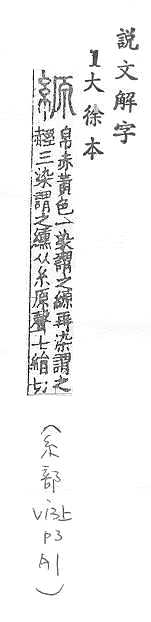 説文解字
1大徐本
縓
帛赤黃色一染謂之縓再染謂之
䞓三染謂之纁从糸原聲七絹切
(糸部
vi3上
P3
A1)